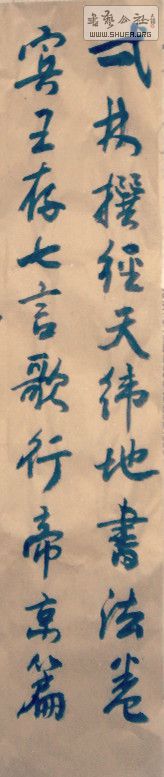 書藝公社
WWW.SHUFA.ORG
林撰經天緯地書法卷
宾王存七言歌行帝京篇